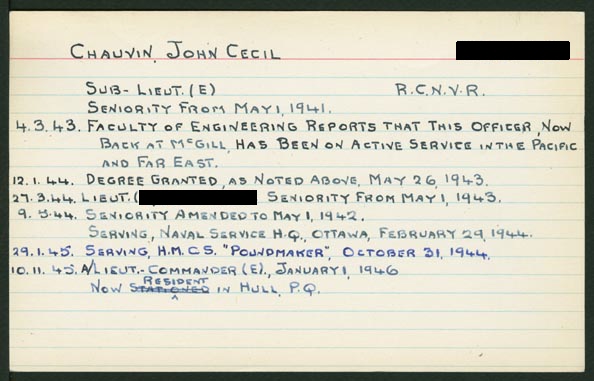 CHAUVIN, JOHN CECIL
SUB-LIEUT. (E) R.C.N.V.R.
SENIORITY FROM MAY 1, 1941.
4.3.43. FACULTY OF ENGINEERING REPORTS THAT THIS OFFICER, NOW
BACK AT McGILL, HAS BEEN ON ACTIVE SERVICE IN THE PACIFIC
AND FAR EAST.
12.1.44. DEGREE GRANTED, AS NOTED ABOVE, MAY 26, 1943.
27.3.44. LIEUT. ( SENIORITY FROM MAY 1, 1943.
9.5.44. SENIORITY AMENDED TO MAY 1, 1942.
SERVING, NAVAL SERVICE H.Q., OTTAWA, FEBRUARY 29, 1944.
29.1.45. SERVING, H.M.C.S. "POUNDMAKER", OCTOBER 31, 1944.
10.11.45. A/LIEUT.-COMMANDER (E)., JANUARY 1, 1946
RESIDENT
NOW STATIONED IN HULL, P.Q.